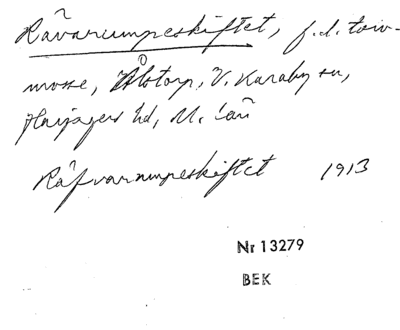 Rävarumpeskiftet, f.d. torv-
mosse, Ålstorp, V. Karaby sn,
Harjagers hd, M. län
Räfvarumpeskiftet 1913
Nr 13279
BEK